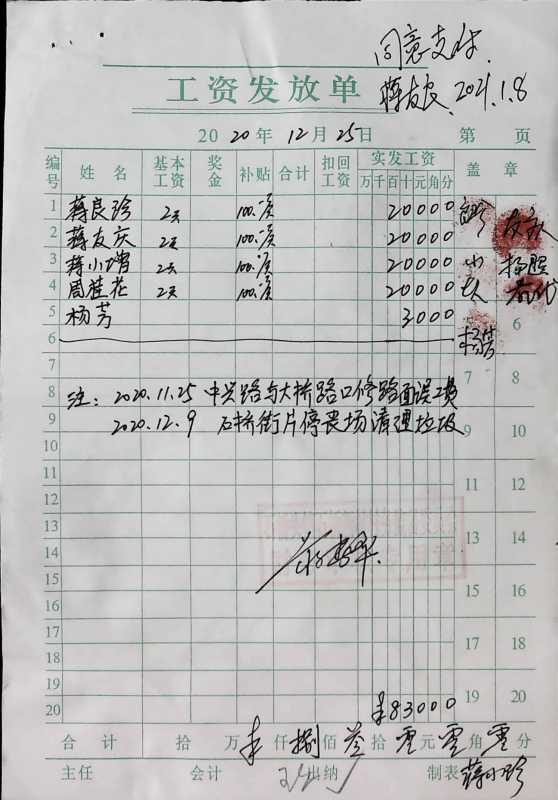 同意支付.
蒋友良. 2021.1.8
工资发放单
2020年12月25日 第 页
编号 姓名 基本工资 奖金 补贴 合计 扣回工资 实发工资 万千百十元角分 盖章
1 蒋良珍 2天 100.-/天 20000
2 蒋友庆 2天 100.-/天 20000 友庆
3 蒋小增 2天 100.-/天 20000 小
4 周桂花 2天 100.-/天 20000
5 杨芳 3000 6
6 杨芳
7 7 8
8 注: 2020.11.25 中兴路与大桥路口修路面误工费
9 2020.12.9 石桥街片停丧场清理垃圾 9 10
10
11 11 12
12
13 13 14
14
15 15 16
16
17 17 18
18
19 19 20
20 ¥83000
合计 拾 万 ¥ 仟 捌 佰 叁 拾 零 元 零 角 零 分
主任 会计 出纳 制表 蒋小珍